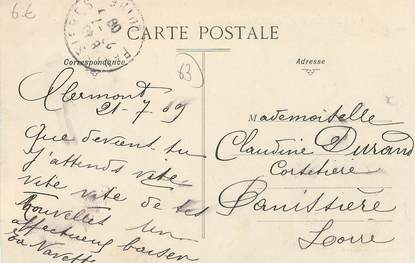 6€
CARTE POSTALE
Correspondance
Adresse
63
Clermont
21-7-09
Que devient tu
J'attends vite
vite vite de tes
Nouvelles un
affectueux baiser
Mademoiselle
Claudine Durand
Corsetière
Panissière
Loire